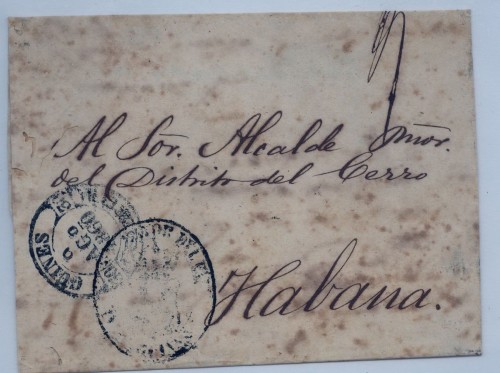 Al Sōr. Alcalde mōr.
del Distrito del Cerro
Habana.
GUINES